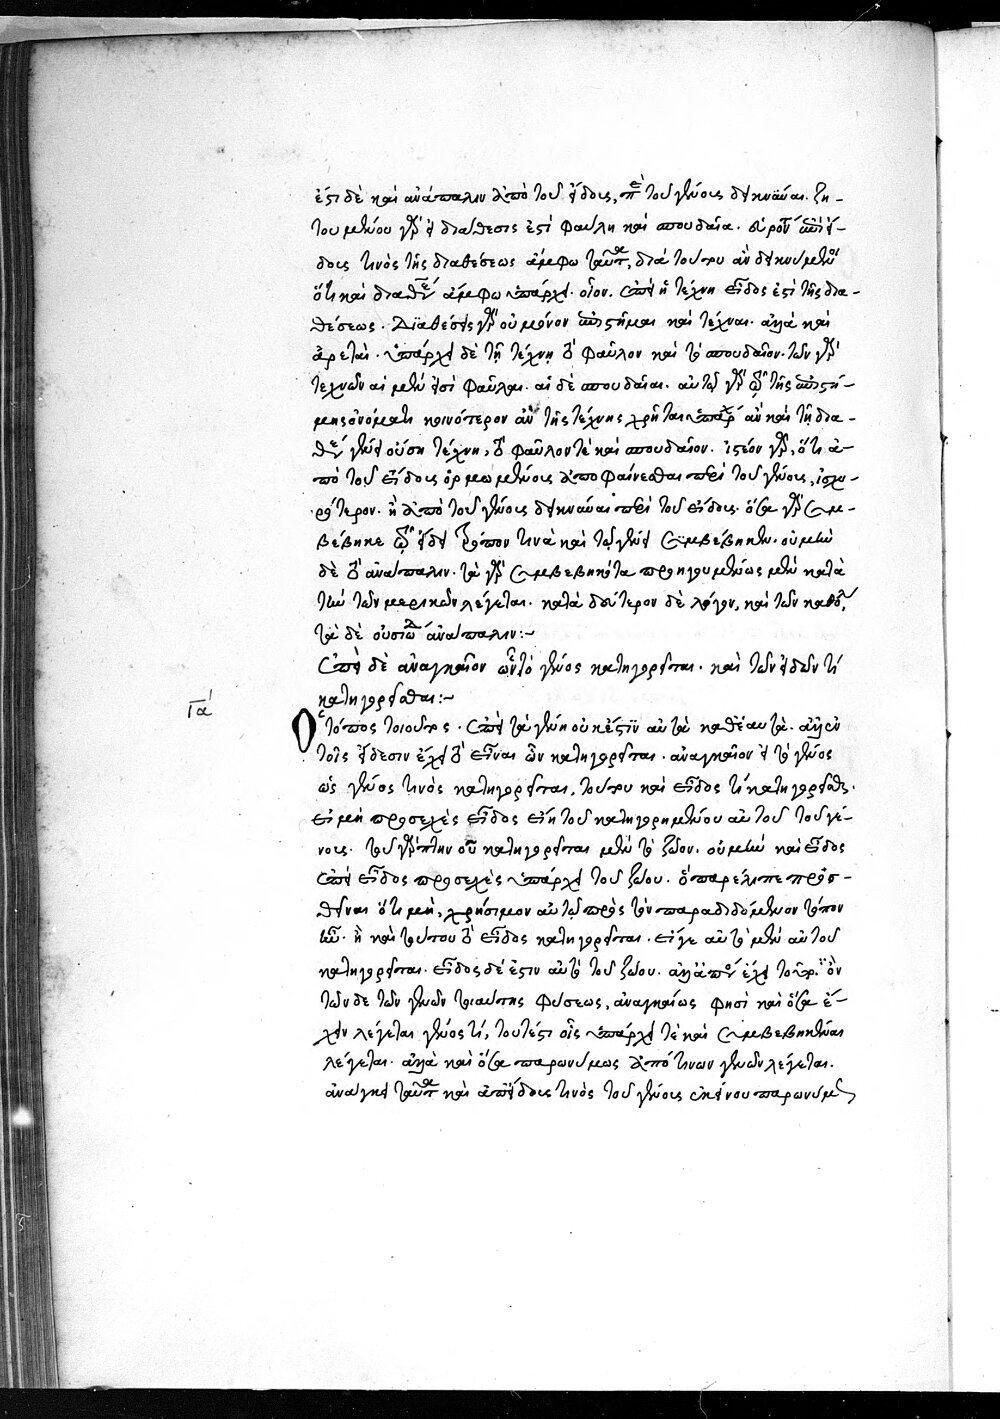 ἔστι δὲ καὶ ἀνάπαλιν ἀπὸ τοῦ εἴδους, περὶ τοῦ γένους δεικνύναι. ζη-
του μένου γὰρ εἰ διάθεσις ἐστὶ φαύλη καὶ σπουδαία. εἴδους τινὸς τῆς διαθέσεως ἄμφω ταῦτα, διὰ τούτου ἂν δεικνύμεν
ὅτι καὶ διαθέσει ἄμφω ὑπάρχει. οἷον. ἐπεὶ ἡ τέχνη εἶδος ἐστὶ τῆς δια-
θέσεως. διαθέσεις γὰρ οὐ μόνον ἐπιστῆμαι καὶ τέχναι. ἀλλὰ καὶ
ἀρεταί. ὑπάρχει δὲ τῇ τέχνῃ τὸ φαῦλον καὶ τὸ σπουδαῖον. τῶν γὰρ
τεχνῶν αἱ μέν εἰσι φαῦλαι. αἱ δὲ σπουδαῖαι. αὐτῷ γὰρ τῷ τῆς ἐπιστή-
μης ὀνόματι κοινότερον ἀντὶ τῆς τέχνης χρῆται ὑπάρχει ἂν καὶ τῇ δια-
θέσει γένει οὔσῃ τέχνης, τὸ φαῦλόν τε καὶ σπουδαῖον. ἰστέον γὰρ, ὅτι ἀ-
πὸ τοῦ εἴδους ὁρμωμένους ἀποφαίνεσθαι περὶ τοῦ γένους, ἰσχυ-
ρότερον. ἢ ἀπὸ τοῦ γένους δεικνύναι περὶ τοῦ εἴδους. ὅσα γὰρ συμ-
βέβηκε τῷ εἴδει τρόπον τινὰ καὶ τῷ γένει συμβέβηκεν. οὐ μὴν
δὲ τὸ ἀνάπαλιν. τὰ γὰρ συμβεβηκότα προηγουμένως μὲν κατὰ
τῶν μερικῶν λέγεται. κατὰ δεύτερον δὲ λόγον, καὶ τῶν καθόλου,
τὰ δὲ οὐσιώδη ἀνάπαλιν:~
ἐπεὶ δὲ ἀναγκαῖον ὧν τὸ γένος κατηγορεῖται. καὶ τῶν εἰδῶν τί
κατηγορεῖσθαι:~
Ὁ τόπος τοιοῦτος. ἐπεὶ τὰ γένη οὐκ ἔστιν αὐτὰ καθ' ἑαυτὰ. ἀλλ' ἐν
τοῖς εἴδεσιν ἔχει τὸ εἶναι ὧν κατηγορεῖται. ἀναγκαῖον εἰ τὸ γένος
ὡς γένος τινὸς κατηγορεῖται, τούτου καὶ εἶδος τί κατηγορεῖσθαι.
εἰ μὴ προσεχὲς εἶδος εἴη τοῦ κατηγορημένου αὐτοῦ τοῦ γέ-
νους. τοῦ γὰρ πτηνοῦ κατηγορεῖται μὲν τὸ ζῶον. οὐ μὴν καὶ εἶδος
ἐπεὶ εἶδος προσεχὲς ὑπάρχει τοῦ ζώου. ὃ παρέλιπε προσ-
θεῖναι ὅτι μὴ, χρήσιμον αὐτῷ πρὸς τὸν παραδιδόμενον τόπον
ἦν. ἢ καὶ τούτου τὸ εἶδος κατηγορεῖται. εἴγε αὐτὸ μὲν αὐτοῦ
κατηγορεῖται. εἶδος δέ ἐστιν αὐτὸ τοῦ ζώου.
τῶν δὲ τῶν γενῶν τοιαύτης φύσεως, ἀναγκαίως φησὶ καὶ ὅσα ἔ-
χειν λέγεται γένος τί, τουτέστι οἷς ὑπάρχει τὲ καὶ συμβεβηκέναι
λέγεται. ἀλλὰ καὶ ὅσα παρωνύμως ἀπό τινων γενῶν λέγεται.
ἀνάγκη ταῦτα καὶ ἀπ' εἴδους τινὸς τοῦ γένους ἐκείνου παρωνύμως